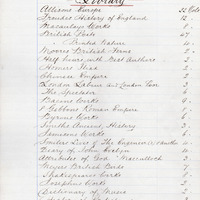 Library
Allisons Europe 22 Vols
Froudes History of England 12 "
Macaulays Works
British Poets 47
" Printed Nature 4
Morris British Ferns 2
Half hours with Best Authors 2
Homers Iliad 2
Chinese Empire 2
London Labour and London Poor 3
The Spectator 8
Bacons Works 4
Gibbons Roman Empire
Byrons Works 6
Smiths Ancient History 3
Jamesons Works 4
Smiles Lives of The Engineers
Diary of John Evelyn
Attributes of God Macculloch 3
Morris British Birds
Shakespeares Works
Josephus Works
Dictionary of Dates